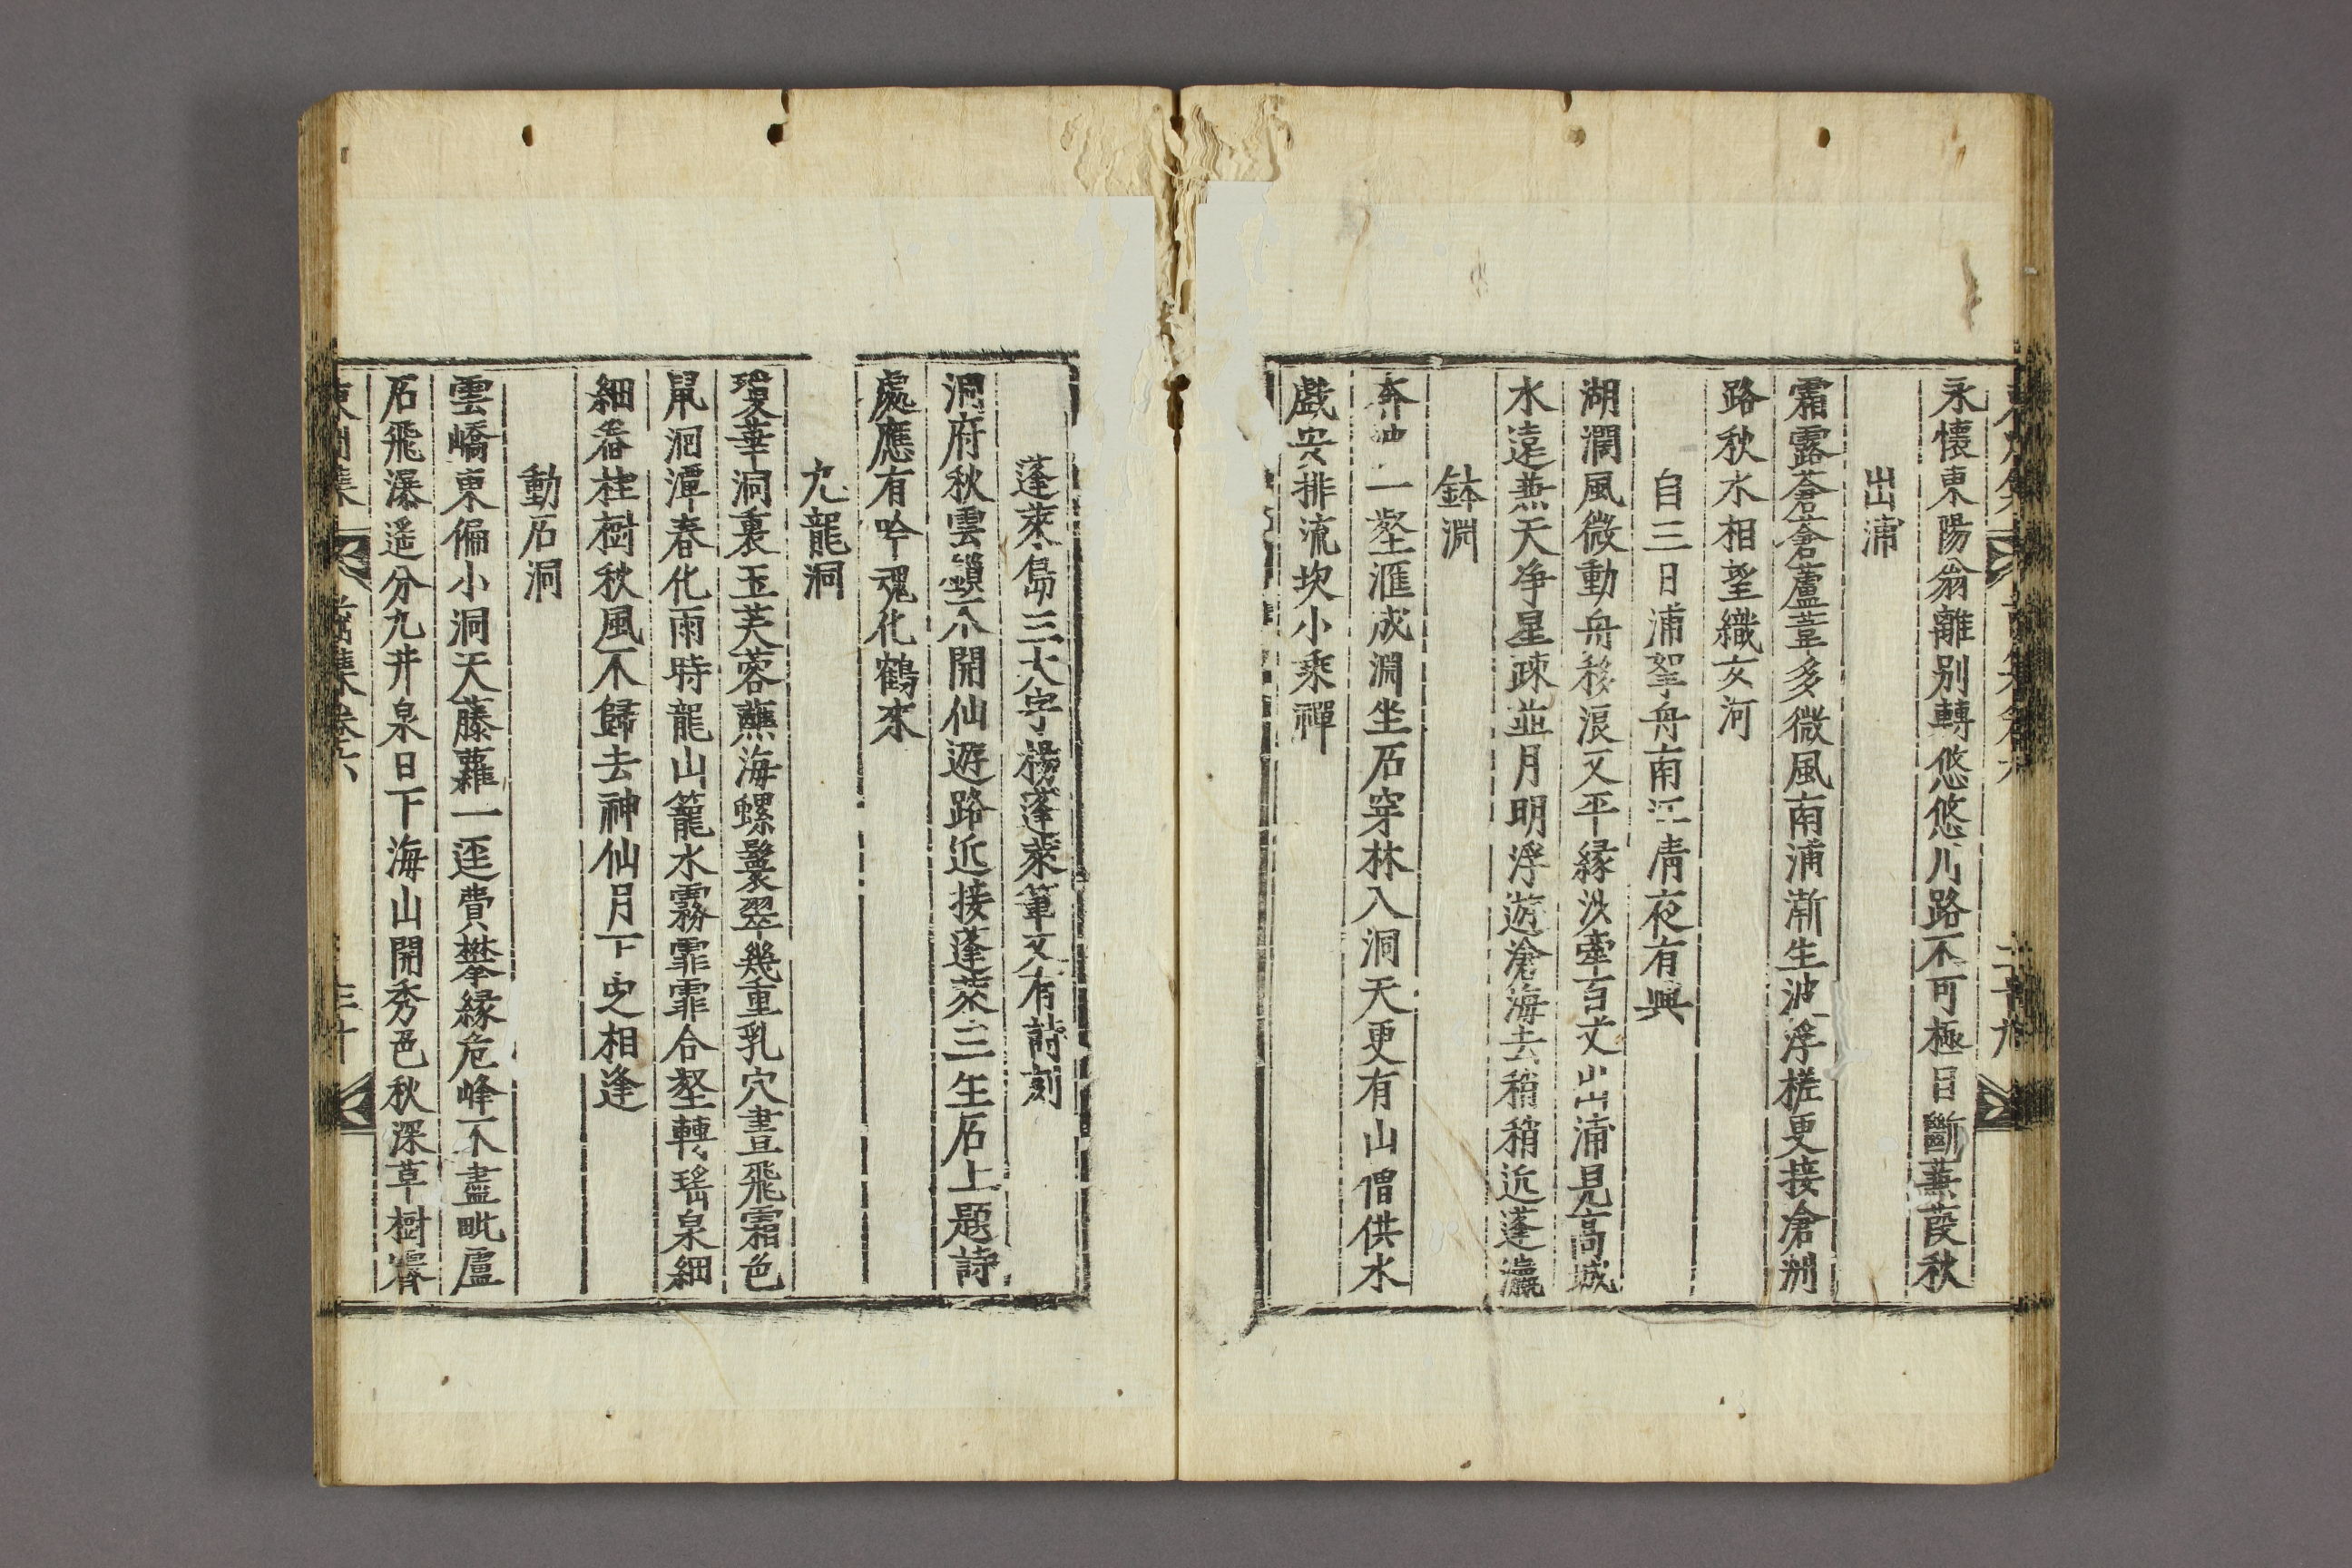 永懷東陽翁離別轉悠悠川路不可極日斷蒹葭秋
出浦
霜露蒼蒼蘆葦多微風南浦漸生波浮槎更接滄洲
路秋水相望織女河
自三日浦挐舟南江清夜有興
湖濶風微動舟移浪又平緣洪牽百丈出浦見高城
水遠燕天净星疎並月明浮遊滄海去稍稍近蓬瀛
鉢淵
奔 一壑滙成淵坐石穿林入洞天更有山僧供水
戲安排流坎小乘禪
蓬萊島三大字楊蓬萊筆又有詩刻
洞府秋雲鎖不開仙遊路近接蓬萊三生石上題詩
處應有吟魂化鶴來
九龍洞
瓊華洞裏玉芙蓉蘸海螺鬟翠幾重乳穴晝飛霜色
鼠洄潭春化雨時龍山籠水霧霏霏合壑轉瑤泉細
細香桂樹秋風不歸去神仙月下之相逢
動石洞
雲嶠東偏小洞天藤蘿一逕費攀緣危峰不盡毗盧
石飛瀑遥分九井泉日下海山開秀色秋深草樹
東州集 前集卷六 三十